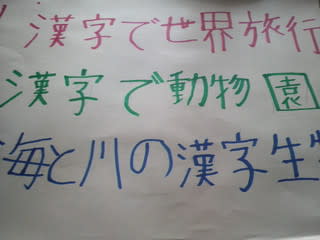 漢字で世界旅行
漢字で動物園
海と川の漢字生